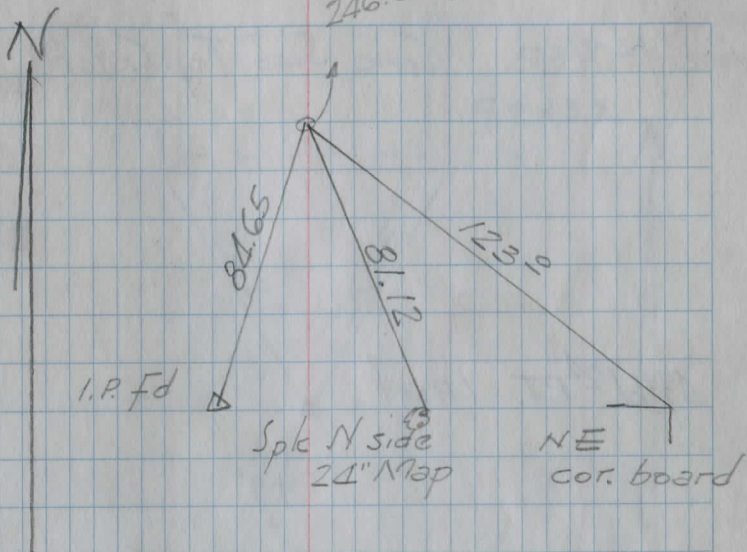 246.
N
84.65
81.12
123
I.P. Fd
Spk N side
24" Map
NE
cor. board